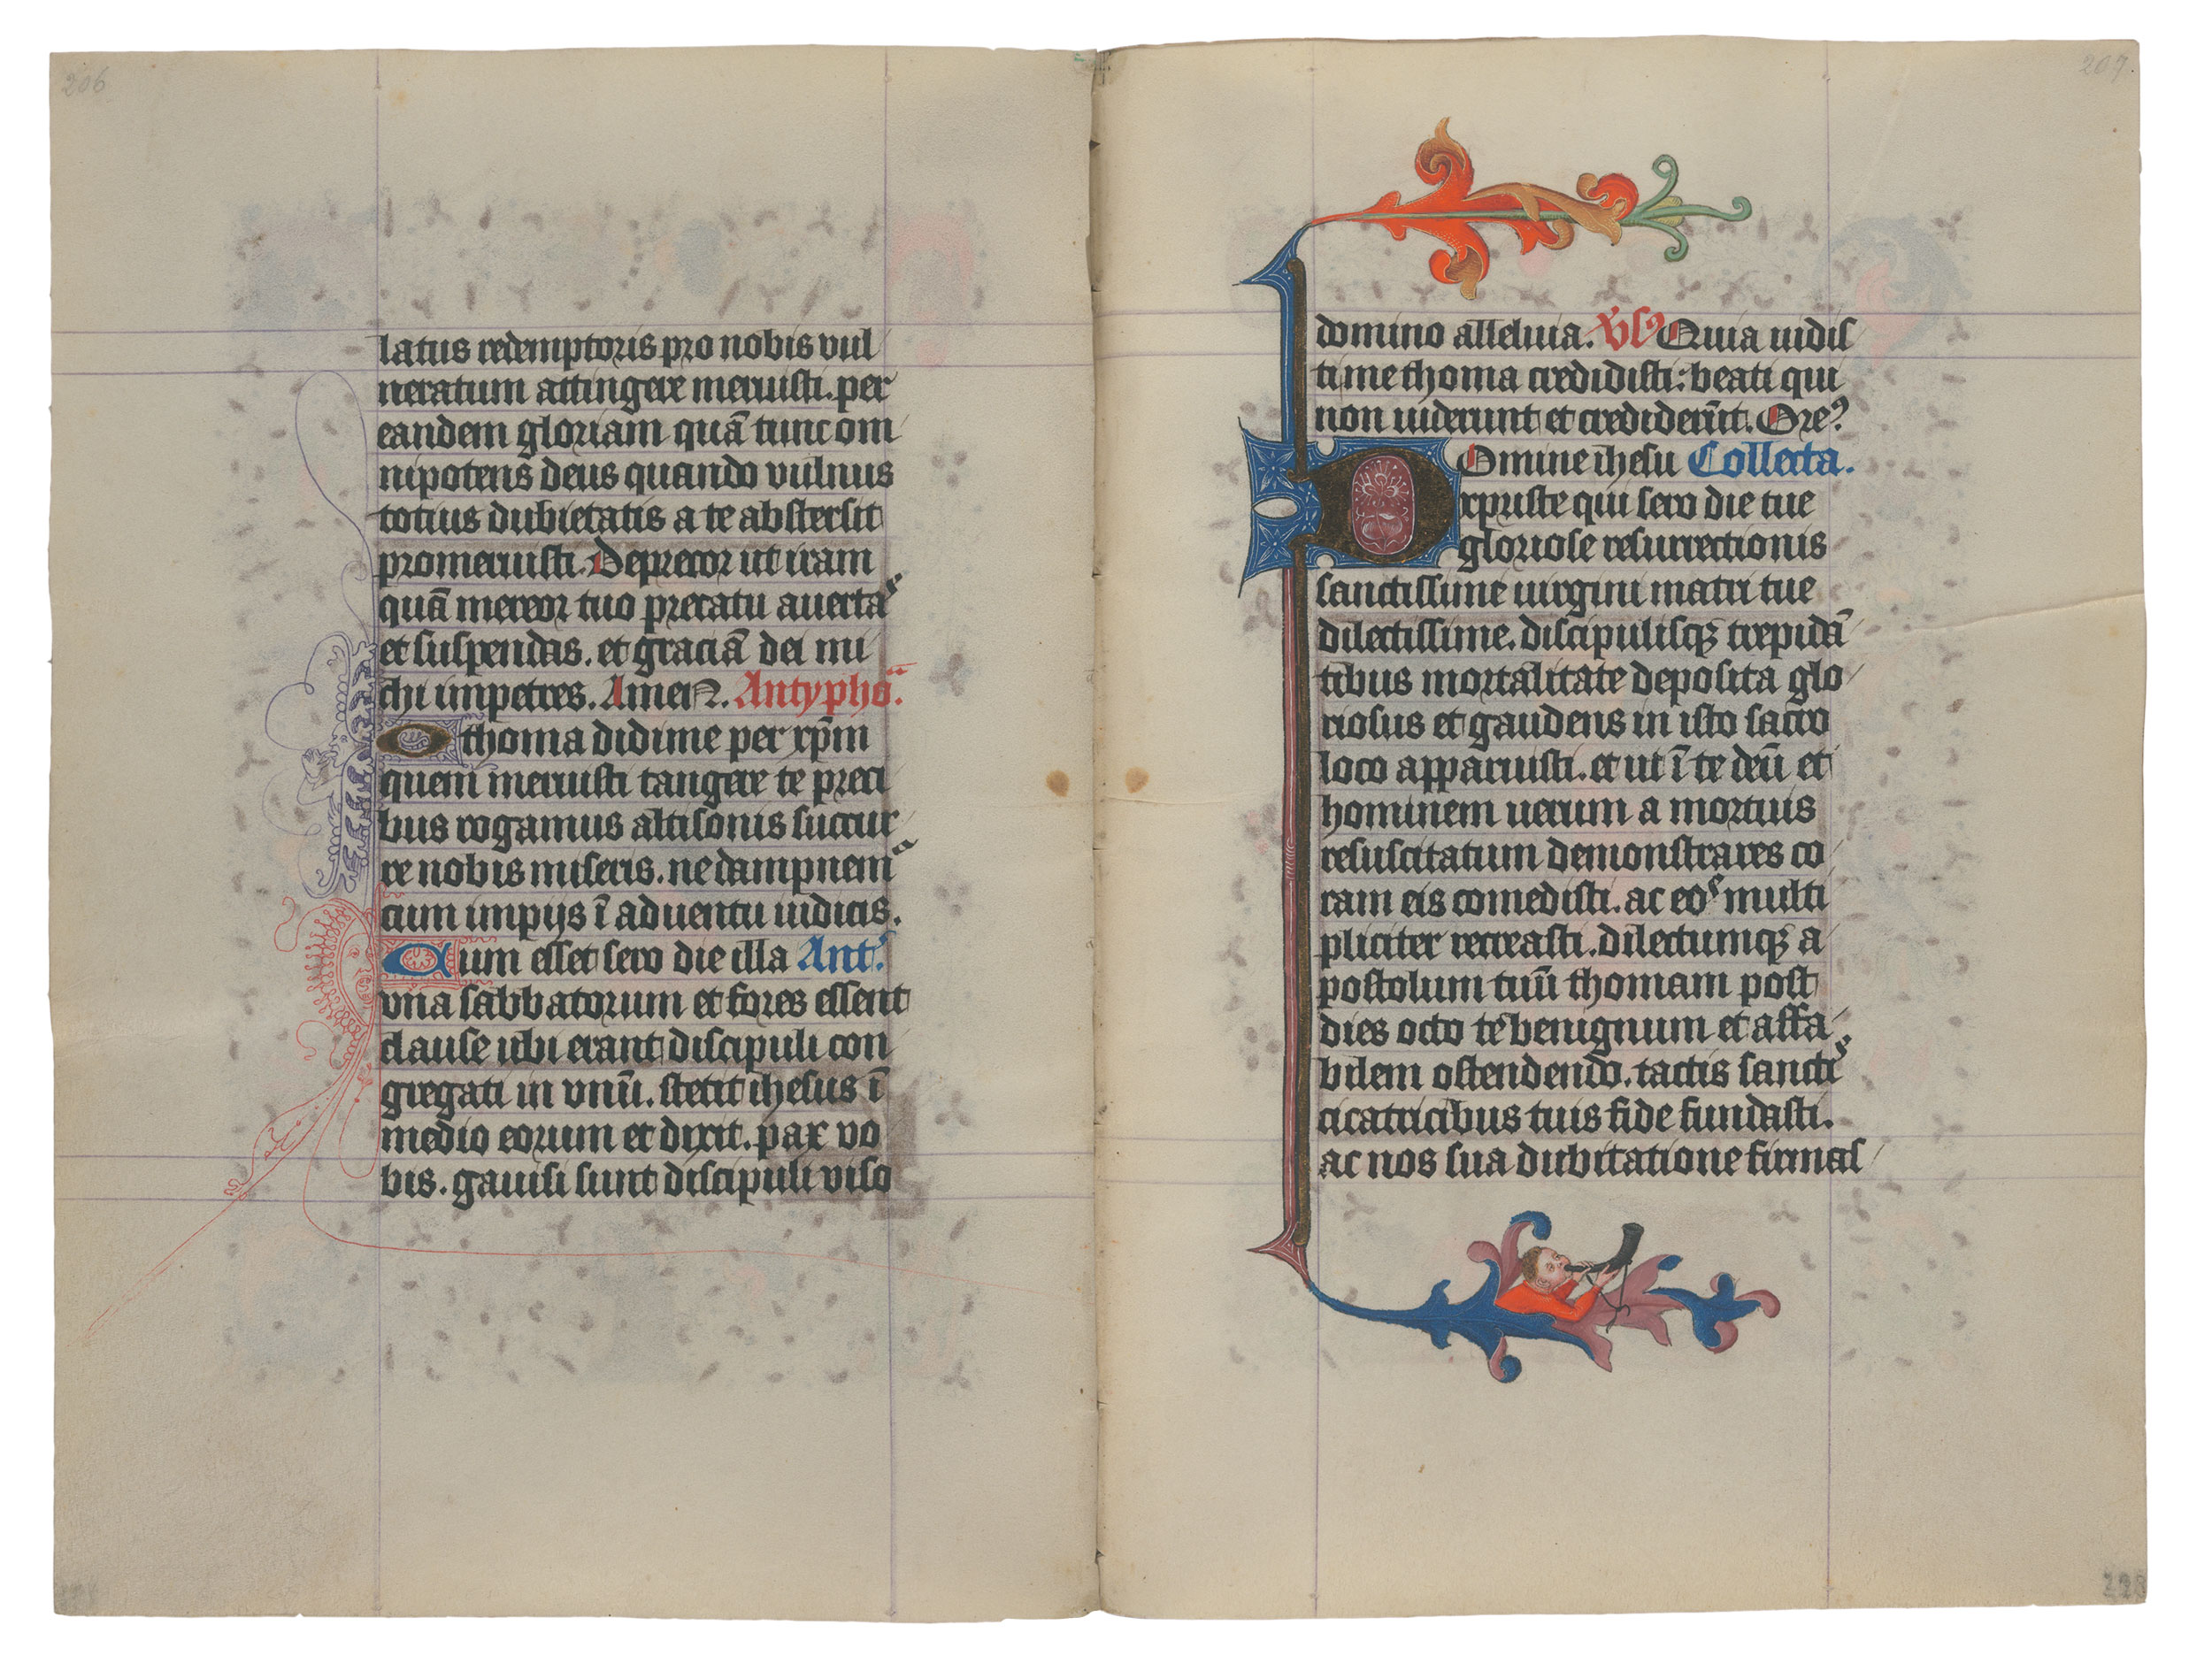 206
latus redemptoris pro nobis vul
neratum attingere meruisti. per
eandem gloriam quā tunc om
nipotens deus quando vulnus
totius dubietatis a te abstersit
promeruisti. Deprecor ut iram
quā mereor tuo precatu averta^s
et suspendas. et graciā dei mi
chi impetres. Amen. Antypho.
O thoma didime per xpm̄
quem meruisti tangere te preci
bus rogamus altisonis succur
re nobis miseris. ne dampnem^r
cum impijs ī adventu iudicis.
Cum esset sero die illa Ant.
vna sabbatorum et fores essent
clause ubi erant discipuli con
gregati in vnū. stetit ihesus ī
medio eorum et dixit. pax vo
bis. gauisi sunt discipuli viso
207
domino alleluia. Vs Quia uidis
ti me thoma credidisti: beati qui
non uiderunt et crediderūt. Ore?
Domine ihesu Collecta.
xpriste qui sero die tue
gloriose resurrectionis
sanctissime uirgini matri tue
dilectissime. discipulisqꝫ trepidā
tibus mortalitate deposita glo
riosus et gaudens in isto sacro
loco apparuisti. et ut ī te deū et
hominem uerum a mortuis
resuscitatum demonstrares co
ram eis comedisti. ac eo^s multi
pliciter recreasti. dilectumqꝫ a
postolum tuū thomam post
dies octo te benignum et affa
bilem ostendendo. tactis sancti^s
cicatricibus tuis fide fundasti.
ac nos sua dubitatione firmas